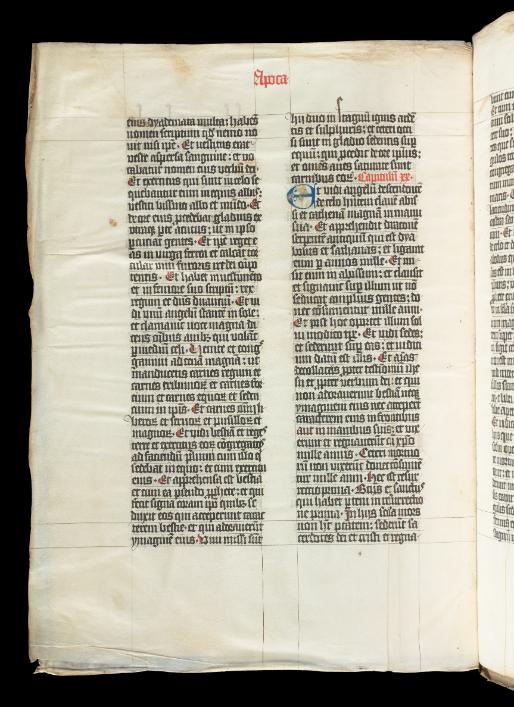 Apoca
eius dyademata multa: habēs
nomen scriptum qđ nemo no
uit nisi ipē. Et uestitus erat
ueste aspersa sanguine: et uo
cabatur nomen eius uerbū dei.
Et exercitus qui sunt in celo se
quebantur eum in equis albis:
uestiti bissino albo et mūdo. Et
de ore eius procedebat gladius ex
utraq; pte acutus: ut in ipso
percutiat gentes. Et ipē reget e
as in uirga ferrea et calcat tor
cular uini furoris ire dei oīpo
tentis. Et habet in uestimēto
et in femore suo scriptū: rex
regum et dūs dnantiū. Et ui
di unū angelū stantē in sole:
et clamauit uoce magna di
cens oībus auib; qui uolāt
p mediū celi. Venite et cong
gamini ad cenā magnā: ut
manducetis carnes regum et
carnes tribunorū et carnes for
cium et carnes equorū et seden
cium in ipīs. Et carnes omīū li
berorū et seruorū et pusillorū et
magnorū. Et uidi bestiā et rege
terre et exercitus eorū cōgregatos
ad faciendū plium cum illo q
sedebat in equo: et cum exercitu
eius. Et apprehensa est bestia
et cum ea pseudo pphete: et qui
fecit signa coram ipō quib; se
duxit eos qui acceperunt carac
terem bestie: et qui adorauerūt
ymaginē eius. Viui missi sūt
hii duo in stagnū ignis ardē
tis et sulphuris: et ceteri occi
si sunt in gladio sedentis sup
equū: qui procedit de ore ipius:
et omēs aues saturate sunt
carnibus eorū. Capitulū xx.
Et uidi angelū descendente
de celo hntem clauē abis
si et cathenā magnā in manu
sua. Et apprehendit draconē
serpentē antiquū qui est dya
bolus et sathanas: et ligauit
eum p annos mille. Et mi
sit eum in abissum: et clausit
et signauit sup illum ut nō
seducat amplius gentes: do
nec cōsumentur mille anni.
Et post hoc oportet illum sol
ui modico tpē. Et uidi sedes
et sederunt sup eas: et iudici
um datū est illis. Et aīas
decollatorū propter testimoniū ihe
su et propter uerbum dei: et qui
non adorauerunt bestiā neq;
ymaginem eius nec acceperūt
caracterem eius in frontibus
aut in manibus suis: et uix
erunt et regnauerūt cū xpo
mille annis. Ceteri mortuo
rū non uixerunt donec cōsumē
tur mille anni. Hec est resur
rectio prima. Beatus et sanctus
qui habet partem in resurrectio
ne prima. In hiis scda mors
non hēt ptātem: sed erūt sa
cerdotes dei et cristi et regna